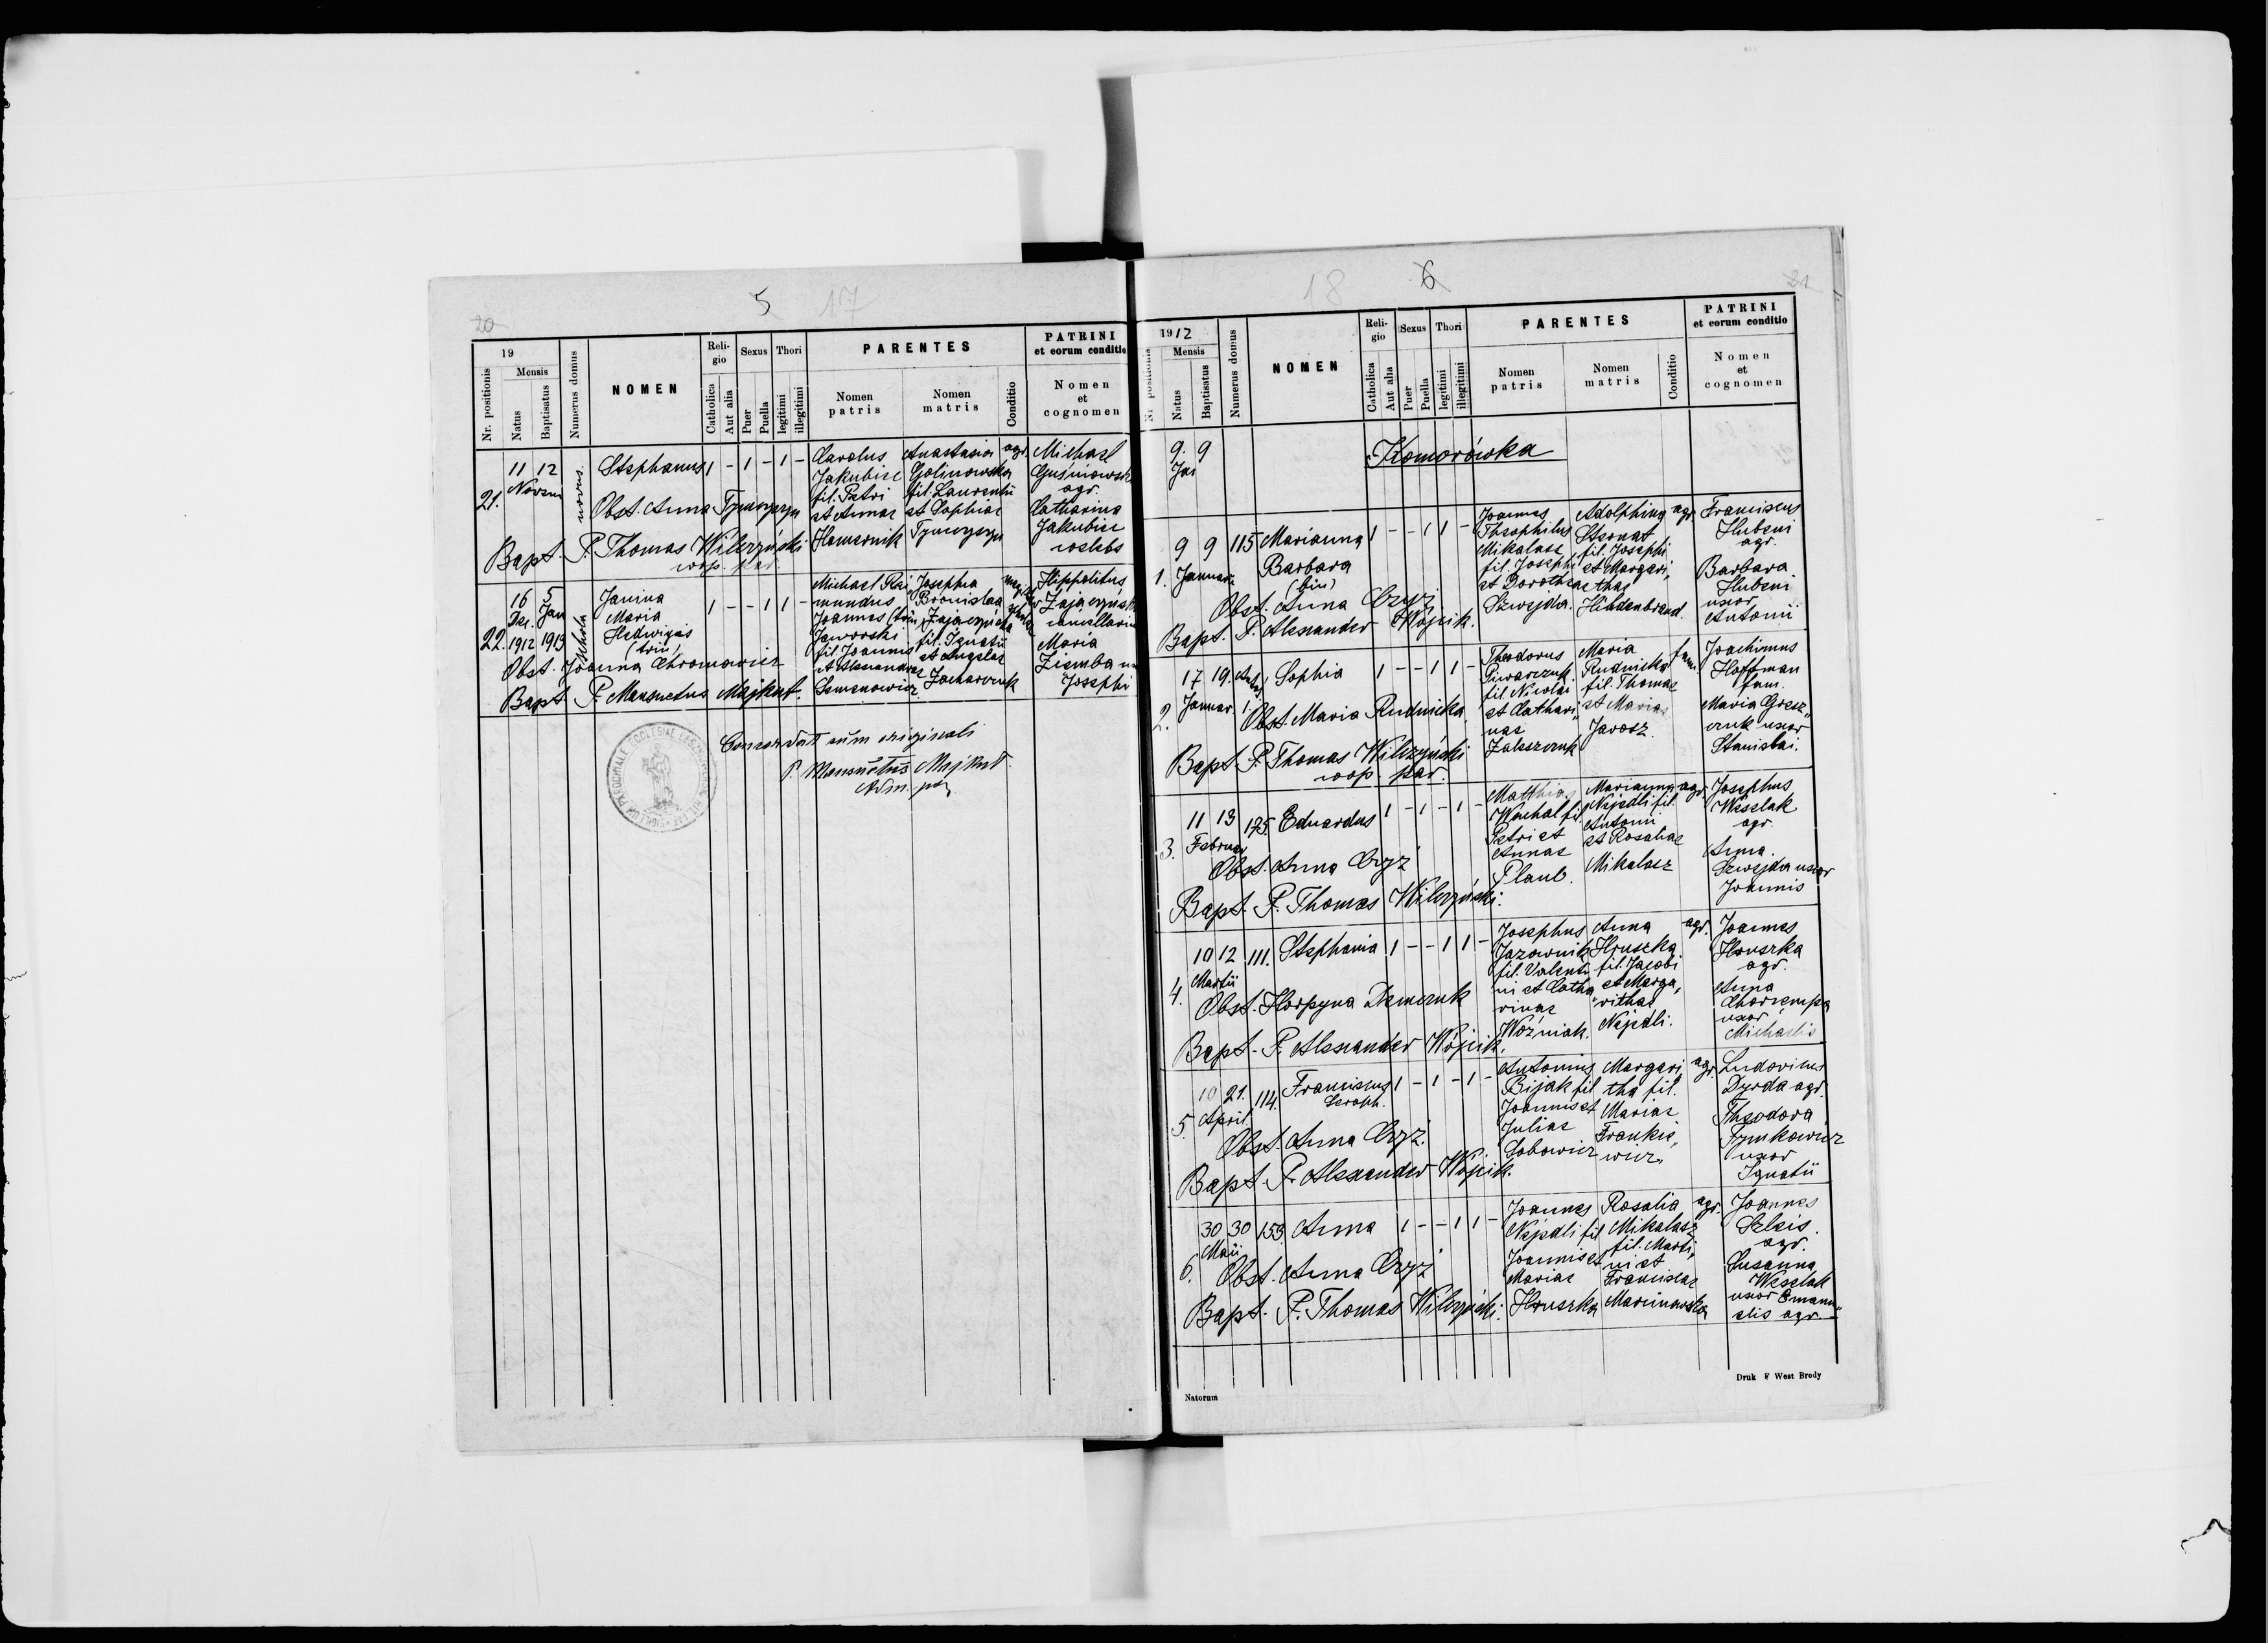 20
5 17
19
Mensis
Nr. positionis
Natus
Baptisatus
Numerus domus
NOMEN
Reli-
gio
Catholica
Aut alia
Sexus
Puer
Puella
Thori
legitimi
illegitimi
PARENTES
Nomen
patris
Nomen
matris
Conditio
PATRINI
et eorum conditio
Nomen
et
cognomen
21.
11 12
Novem
novus
Stephanus 1 - 1 - 1 -
Obst. Anna
Bapt. P. Thomas Wilczyński
coop. par.
Carolus
Jakubiec
fil. Petri
et Annae
Hamernik
Anastasia
Golinowska
fil. Laurentii
et Sophiae
agr.
Michael
agr.
Catharina
Jakubiec
22.
16 5
Dec. Jan
1912 1913
Janina
Maria
Hedwigis
(trin)
1 - - 1 1 -
Obst. Joanna Chromowicz
Bapt. P. Mansuetus Majkut.
Michael Rai
mundus
Joannes (trin)
Jaworski
fil. Joannis
et Alexandrae
Semenowicz
Josepha
Bronislaa
fil. Ignatii
et Angelae
Zacharczuk
Hippolitus
Maria
Ziemba
Josephi
Concordat cum originali
P. Mansuetus Majkut
Adm. par.
18 6
21
1912
Mensis
Nr. positionis
Natus
Baptisatus
Numerus domus
NOMEN
Reli-
gio
Catholica
Aut alia
Sexus
Puer
Puella
Thori
legitimi
illegitimi
PARENTES
Nomen
patris
Nomen
matris
Conditio
PATRINI
et eorum conditio
Nomen
et
cognomen
9. 9
Komorówka
1.
9 9 115 Marianna 1 - - 1 1 -
Januari
Barbara
(bin)
Obst. Anna Czyż
Bapt. P. Alexander Wójcik.
Joannes
Theophilus
Mikalasz
fil. Josephi
et Dorotheae
Szwejda.
Adolphina
fil. Josephi
et Margari,
thae
Hindenbrand.
agr.
Franciscus
Hubeni
agr.
Barbara
Hubeni
uxor
Antonii
2.
17 19. Sophia 1 - - 1 1 -
Januar.
Obst. Maria Rudnicka
Bapt. P. Thomas Wilczyński
coop. par.
Theodorus
Piwarczuk
fil. Nicolai
et Cathari,,
nae
Zaleszczuk
Maria
Rudnicka
fil. Thomae
et Mariae
Jarosz.
fam.
Joachimus
Hoffman
fam.
Maria Gresz,,
czuk uxor
Stanislai.
3.
11 13 175 Eduardus 1 - 1 - 1 -
Februar
Obst. Anna Czyż
Bapt. P. Thomas Wilczyński.
Matthias
Wachal fil
Petri et
Annae
Plaub.
Marianna
Nejedli fil.
Antonii
et Rosaliae
Mikalasz
agr.
Josephus
Weselak
agr.
Anna
Szwejda uxor
Joannis
4.
10 12 111. Stephania 1 - - 1 1 -
Martii
Obst. Horpyna Demczuk
Bapt. P. Alexander Wójcik.
Josephus
Jazownik
fil. Valenti
ni et Catha
rinae
Woźniak.
Anna
Hruszka
fil. Jacobi
et Marga,
rithae
Nejedli.
agr.
Joannes
Hruszka
agr.
Anna
uxor
Michaelis
5.
10 21. 114. Franciscus 1 - 1 - 1 -
Seraph.
April
Obst. Anna Czyż.
Bapt. P. Alexander Wójcik.
Antonius
Bijak fil
Joannis et
Juliae
Sobowicz
Margari,
tha fil.
Mariae
Frankie,
wicz,,
agr.
Ludovicus
Dyrda agr.
Theodora
Tymkowicz
uxor
Ignatii
6.
30 30 153. Anna 1 - - 1 1 -
Maii
Obst. Anna Czyż
Bapt. P. Thomas Wilczyński.
Joannes
Nejedli fil
Joannis et
Mariae
Hruszka
Rosalia
Mikalasz
fil. Marti,
ni et
Franciscae
Marcinowska
agr.
Joannes
Szleis.
agr.
Susanna
Weselak
uxor Emanu,,
elis agr.
Natorum
Druk F West Brody